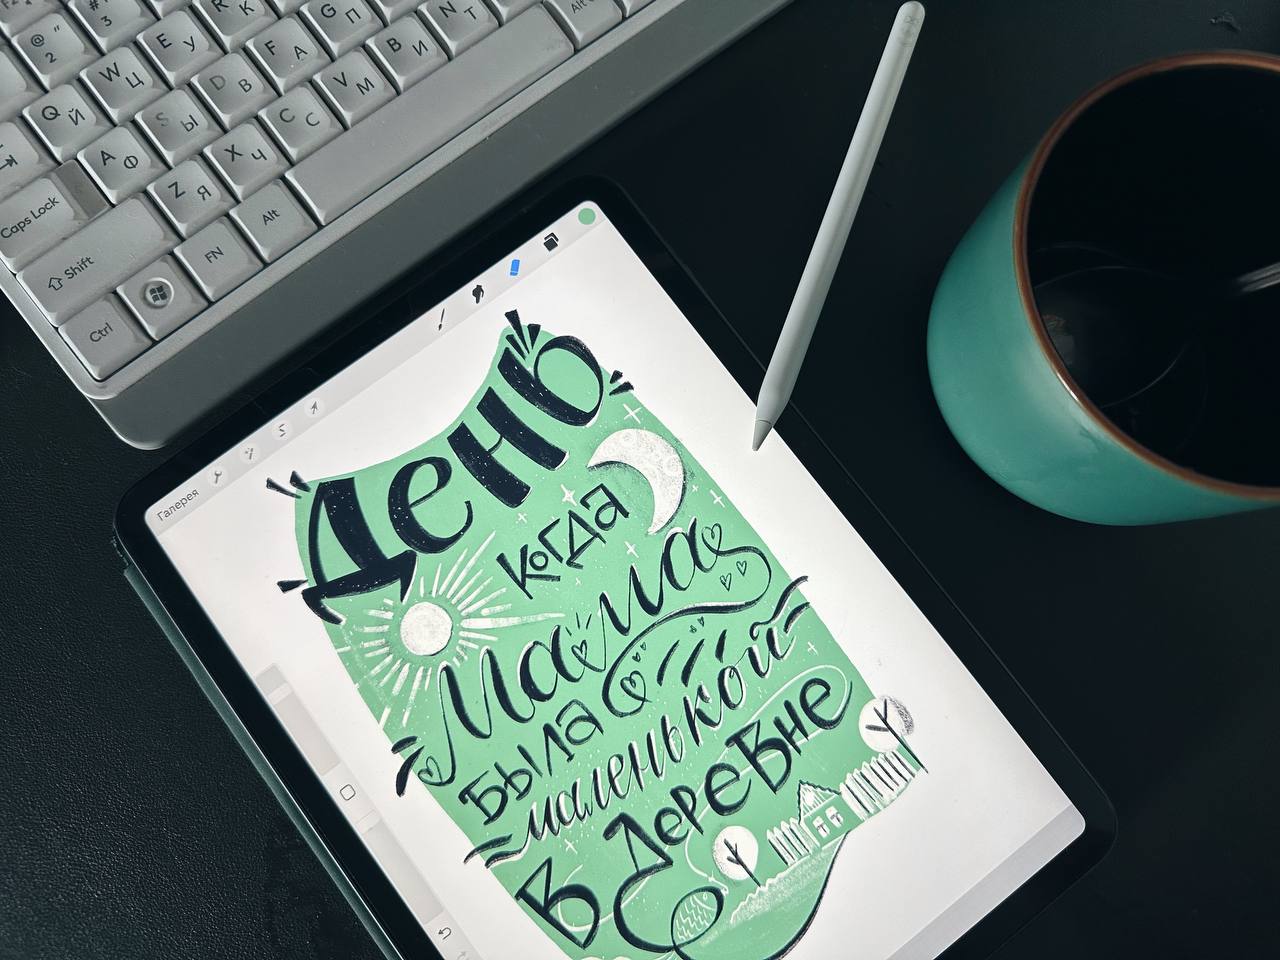 @ "
2
#
3
Q Й W Ц E У R К
Caps Lock A Ф S Ы D В F А G П
Shift Z Я X Ч C С V М B И N Т
Ctrl FN Alt Alt
Галерея
День
когда
мама
была
маленькой
в деревне